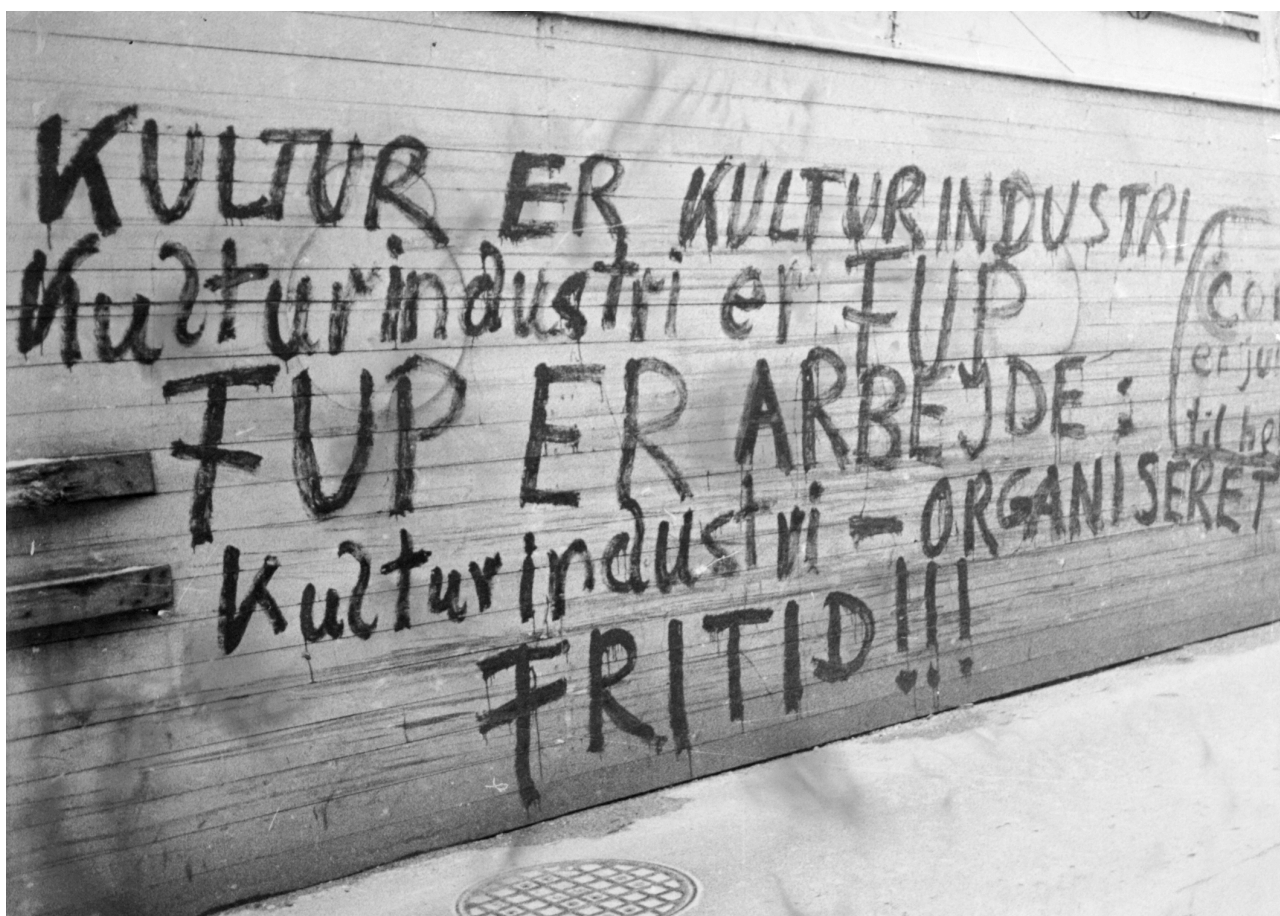 KULTUR ER KULTURINDUSTRI
Kulturindustri er FUP
FUP ER ARBEJDE:
Kulturindustri - ORGANISERET
FRITID!!!
er
til